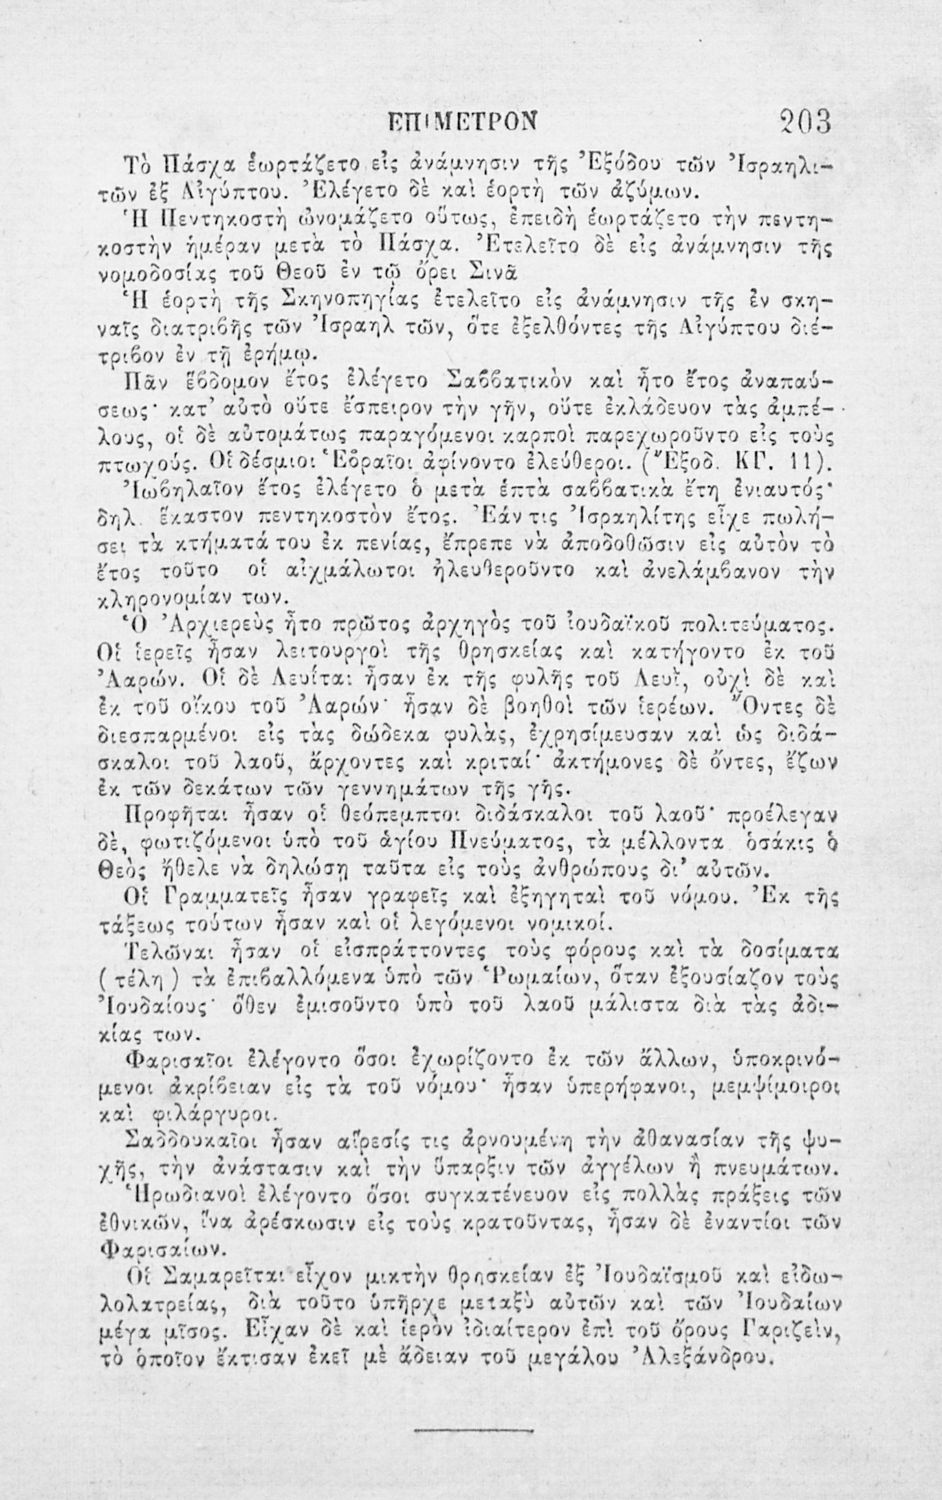 ΕΠΙΜΕΤΡΟΝ 203
Τὸ Πάσχα ἑωρτάζετο εἰς ἀνάμνησιν τῆς Ἐξόδου τῶν Ἰσραηλι-
τῶν ἐξ Αἰγύπτου. Ἐλέγετο δὲ καὶ ἑορτὴ τῶν ἀζύμων.
Ἡ Πεντηκοστὴ ὠνομάζετο οὕτως, ἐπειδὴ ἑωρτάζετο τὴν πεντη-
κοστὴν ἡμέραν μετὰ τὸ Πάσχα. Ἐτελεῖτο δὲ εἰς ἀνάμνησιν τῆς
νομοδοσίας τοῦ Θεοῦ ἐν τῷ ὄρει Σινᾶ
Ἡ ἑορτὴ τῆς Σκηνοπηγίας ἐτελεῖτο εἰς ἀνάμνησιν τῆς ἐν σκη-
ναῖς διατριβῆς τῶν Ἰσραηλ τῶν, ὅτε ἐξελθόντες τῆς Αἰγύπτου διέ-
τριβον ἐν τῇ ἐρήμῳ.
Πᾶν ἕβδομον ἔτος ἐλέγετο Σαββατικὸν καὶ ἦτο ἔτος ἀναπαύ-
σεως· κατ' αὐτὸ οὔτε ἔσπειρον τὴν γῆν, οὔτε ἐκλάδευον τὰς ἀμπέ-
λους, οἱ δὲ αὐτομάτως παραγόμενοι καρποὶ παρεχωροῦντο εἰς τοὺς
πτωχούς. Οἱ δέσμιοι Ἑβραῖοι ἀφίνοντο ἐλεύθεροι. (Ἔξοδ. ΚΓ. 11).
Ἰωβηλαῖον ἔτος ἐλέγετο ὁ μετὰ ἑπτὰ σαββατικὰ ἔτη ἐνιαυτός·
δηλ. ἕκαστον πεντηκοστὸν ἔτος. Ἐάν τις Ἰσραηλίτης εἶχε πωλή-
σει τὰ κτήματά του ἐκ πενίας, ἔπρεπε νὰ ἀποδοθῶσιν εἰς αὐτὸν τὸ
ἔτος τοῦτο οἱ αἰχμάλωτοι ἠλευθεροῦντο καὶ ἀνελάμβανον τὴν
κληρονομίαν των.
Ὁ Ἀρχιερεὺς ἦτο πρῶτος ἀρχηγὸς τοῦ ἰουδαϊκοῦ πολιτεύματος.
Οἱ ἱερεῖς ἦσαν λειτουργοὶ τῆς θρησκείας καὶ κατήγοντο ἐκ τοῦ
Ἀαρών. Οἱ δὲ Λευίται ἦσαν ἐκ τῆς φυλῆς τοῦ Λευΐ, οὐχὶ δὲ καὶ
ἐκ τοῦ οἴκου τοῦ Ἀαρών· ἦσαν δὲ βοηθοὶ τῶν ἱερέων. Ὄντες δὲ
διεσπαρμένοι εἰς τὰς δώδεκα φυλὰς, ἐχρησίμευσαν καὶ ὡς διδά-
σκαλοι τοῦ λαοῦ, ἄρχοντες καὶ κριταί· ἀκτήμονες δὲ ὄντες, ἔζων
ἐκ τῶν δεκάτων τῶν γεννημάτων τῆς γῆς.
Προφῆται ἦσαν οἱ θεόπεμπτοι διδάσκαλοι τοῦ λαοῦ· προέλεγαν
δὲ, φωτιζόμενοι ὑπὸ τοῦ ἁγίου Πνεύματος, τὰ μέλλοντα ὁσάκις ὁ
Θεὸς ἤθελε νὰ δηλώσῃ ταῦτα εἰς τοὺς ἀνθρώπους δι' αὐτῶν.
Οἱ Γραμματεῖς ἦσαν γραφεῖς καὶ ἐξηγηταὶ τοῦ νόμου. Ἐκ τῆς
τάξεως τούτων ἦσαν καὶ οἱ λεγόμενοι νομικοί.
Τελῶναι ἦσαν οἱ εἰσπράττοντες τοὺς φόρους καὶ τὰ δοσίματα
(τέλη) τὰ ἐπιβαλλόμενα ὑπὸ τῶν Ῥωμαίων, ὅταν ἐξουσίαζον τοὺς
Ἰουδαίους· ὅθεν ἐμισοῦντο ὑπὸ τοῦ λαοῦ μάλιστα διὰ τὰς ἀδι-
κίας των.
Φαρισαῖοι ἐλέγοντο ὅσοι ἐχωρίζοντο ἐκ τῶν ἄλλων, ὑποκρινό-
μενοι ἀκρίβειαν εἰς τὰ τοῦ νόμου· ἦσαν ὑπερήφανοι, μεμψίμοιροι
καὶ φιλάργυροι.
Σαδδουκαῖοι ἦσαν αἵρεσίς τις ἀρνουμένη τὴν ἀθανασίαν τῆς ψυ-
χῆς, τὴν ἀνάστασιν καὶ τὴν ὕπαρξιν τῶν ἀγγέλων ἢ πνευμάτων.
Ἡρωδιανοὶ ἐλέγοντο ὅσοι συγκατένευον εἰς πολλὰς πράξεις τῶν
ἐθνικῶν, ἵνα ἀρέσκωσιν εἰς τοὺς κρατοῦντας, ἦσαν δὲ ἐναντίοι τῶν
Φαρισαίων.
Οἱ Σαμαρεῖται εἶχον μικτὴν θρησκείαν ἐξ Ἰουδαϊσμοῦ καὶ εἰδω-
λολατρείας, διὰ τοῦτο ὑπῆρχε μεταξὺ αὐτῶν καὶ τῶν Ἰουδαίων
μέγα μῖσος. Εἶχαν δὲ καὶ ἱερὸν ἰδιαίτερον ἐπὶ τοῦ ὄρους Γαριζεὶν,
τὸ ὁποῖον ἔκτισαν ἐκεῖ μὲ ἄδειαν τοῦ μεγάλου Ἀλεξάνδρου.